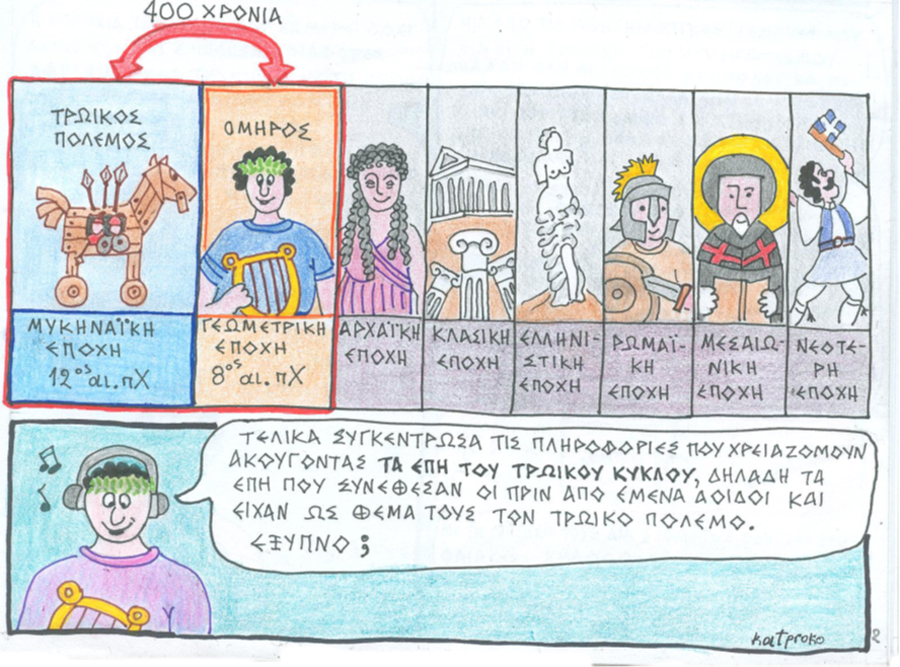 400 ΧΡΟΝΙΑ
ΤΡΩΙΚΟΣ
ΠΟΛΕΜΟΣ
ΟΜΗΡΟΣ
ΜΥΚΗΝΑΪΚΗ
ΕΠΟΧΗ
12ος αι. πΧ
ΓΕΩΜΕΤΡΙΚΗ
ΕΠΟΧΗ
8ος αι. πΧ
ΑΡΧΑΪΚΗ
ΕΠΟΧΗ
ΚΛΑΣΙΚΗ
ΕΠΟΧΗ
ΕΛΛΗΝΙ-
ΣΤΙΚΗ
ΕΠΟΧΗ
ΡΩΜΑΪ-
ΚΗ
ΕΠΟΧΗ
ΜΕΣΑΙΩ-
ΝΙΚΗ
ΕΠΟΧΗ
ΝΕΟΤΕ-
ΡΗ
ΕΠΟΧΗ
ΤΕΛΙΚΑ ΣΥΓΚΕΝΤΡΩΣΑ ΤΙΣ ΠΛΗΡΟΦΟΡΙΕΣ ΠΟΥ ΧΡΕΙΑΖΟΜΟΥΝ
ΑΚΟΥΓΟΝΤΑΣ ΤΑ ΕΠΗ ΤΟΥ ΤΡΩΙΚΟΥ ΚΥΚΛΟΥ, ΔΗΛΑΔΗ ΤΑ
ΕΠΗ ΠΟΥ ΣΥΝΕΘΕΣΑΝ ΟΙ ΠΡΙΝ ΑΠΟ ΕΜΕΝΑ ΑΟΙΔΟΙ ΚΑΙ
ΕΙΧΑΝ ΩΣ ΘΕΜΑ ΤΟΥΣ ΤΟΝ ΤΡΩΙΚΟ ΠΟΛΕΜΟ.
ΕΞΥΠΝΟ;
katproko
2